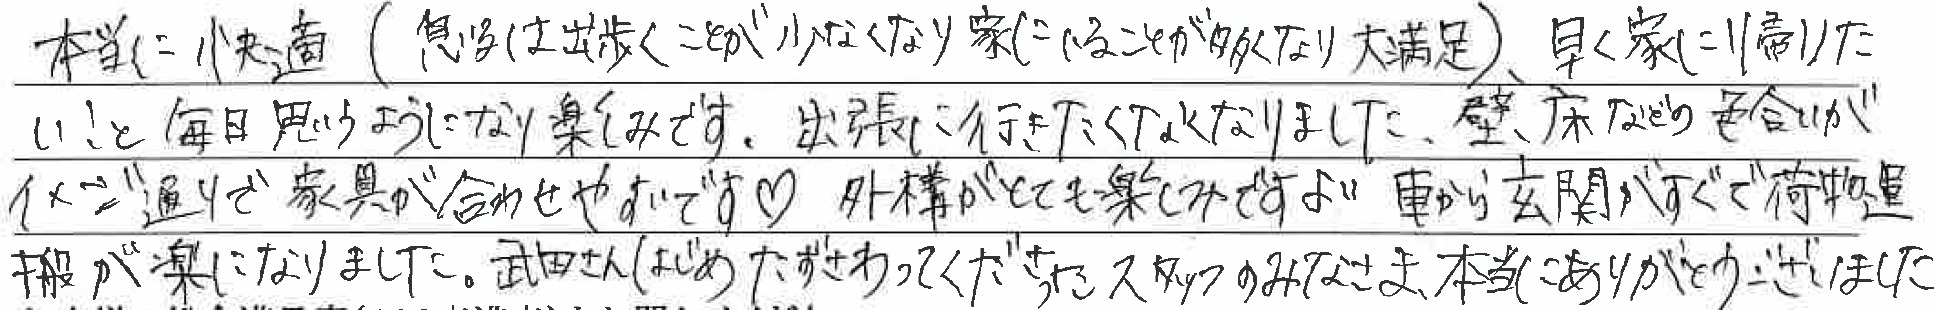 本当に快適(息子は出歩くことが少なくなり家にいることが多くなり大満足)、早く家に帰りた
いと毎日思うようになり楽しみです。出張に行きたくなくなりました、壁、床などの色合いが
イメージ通りで家具が合わせやすいです♡ 外構がとても楽しみです 車から玄関がすぐで荷物運
搬が楽になりました。武田さんはじめたずさわってくださったスタッフのみなさま、本当にありがとうございました